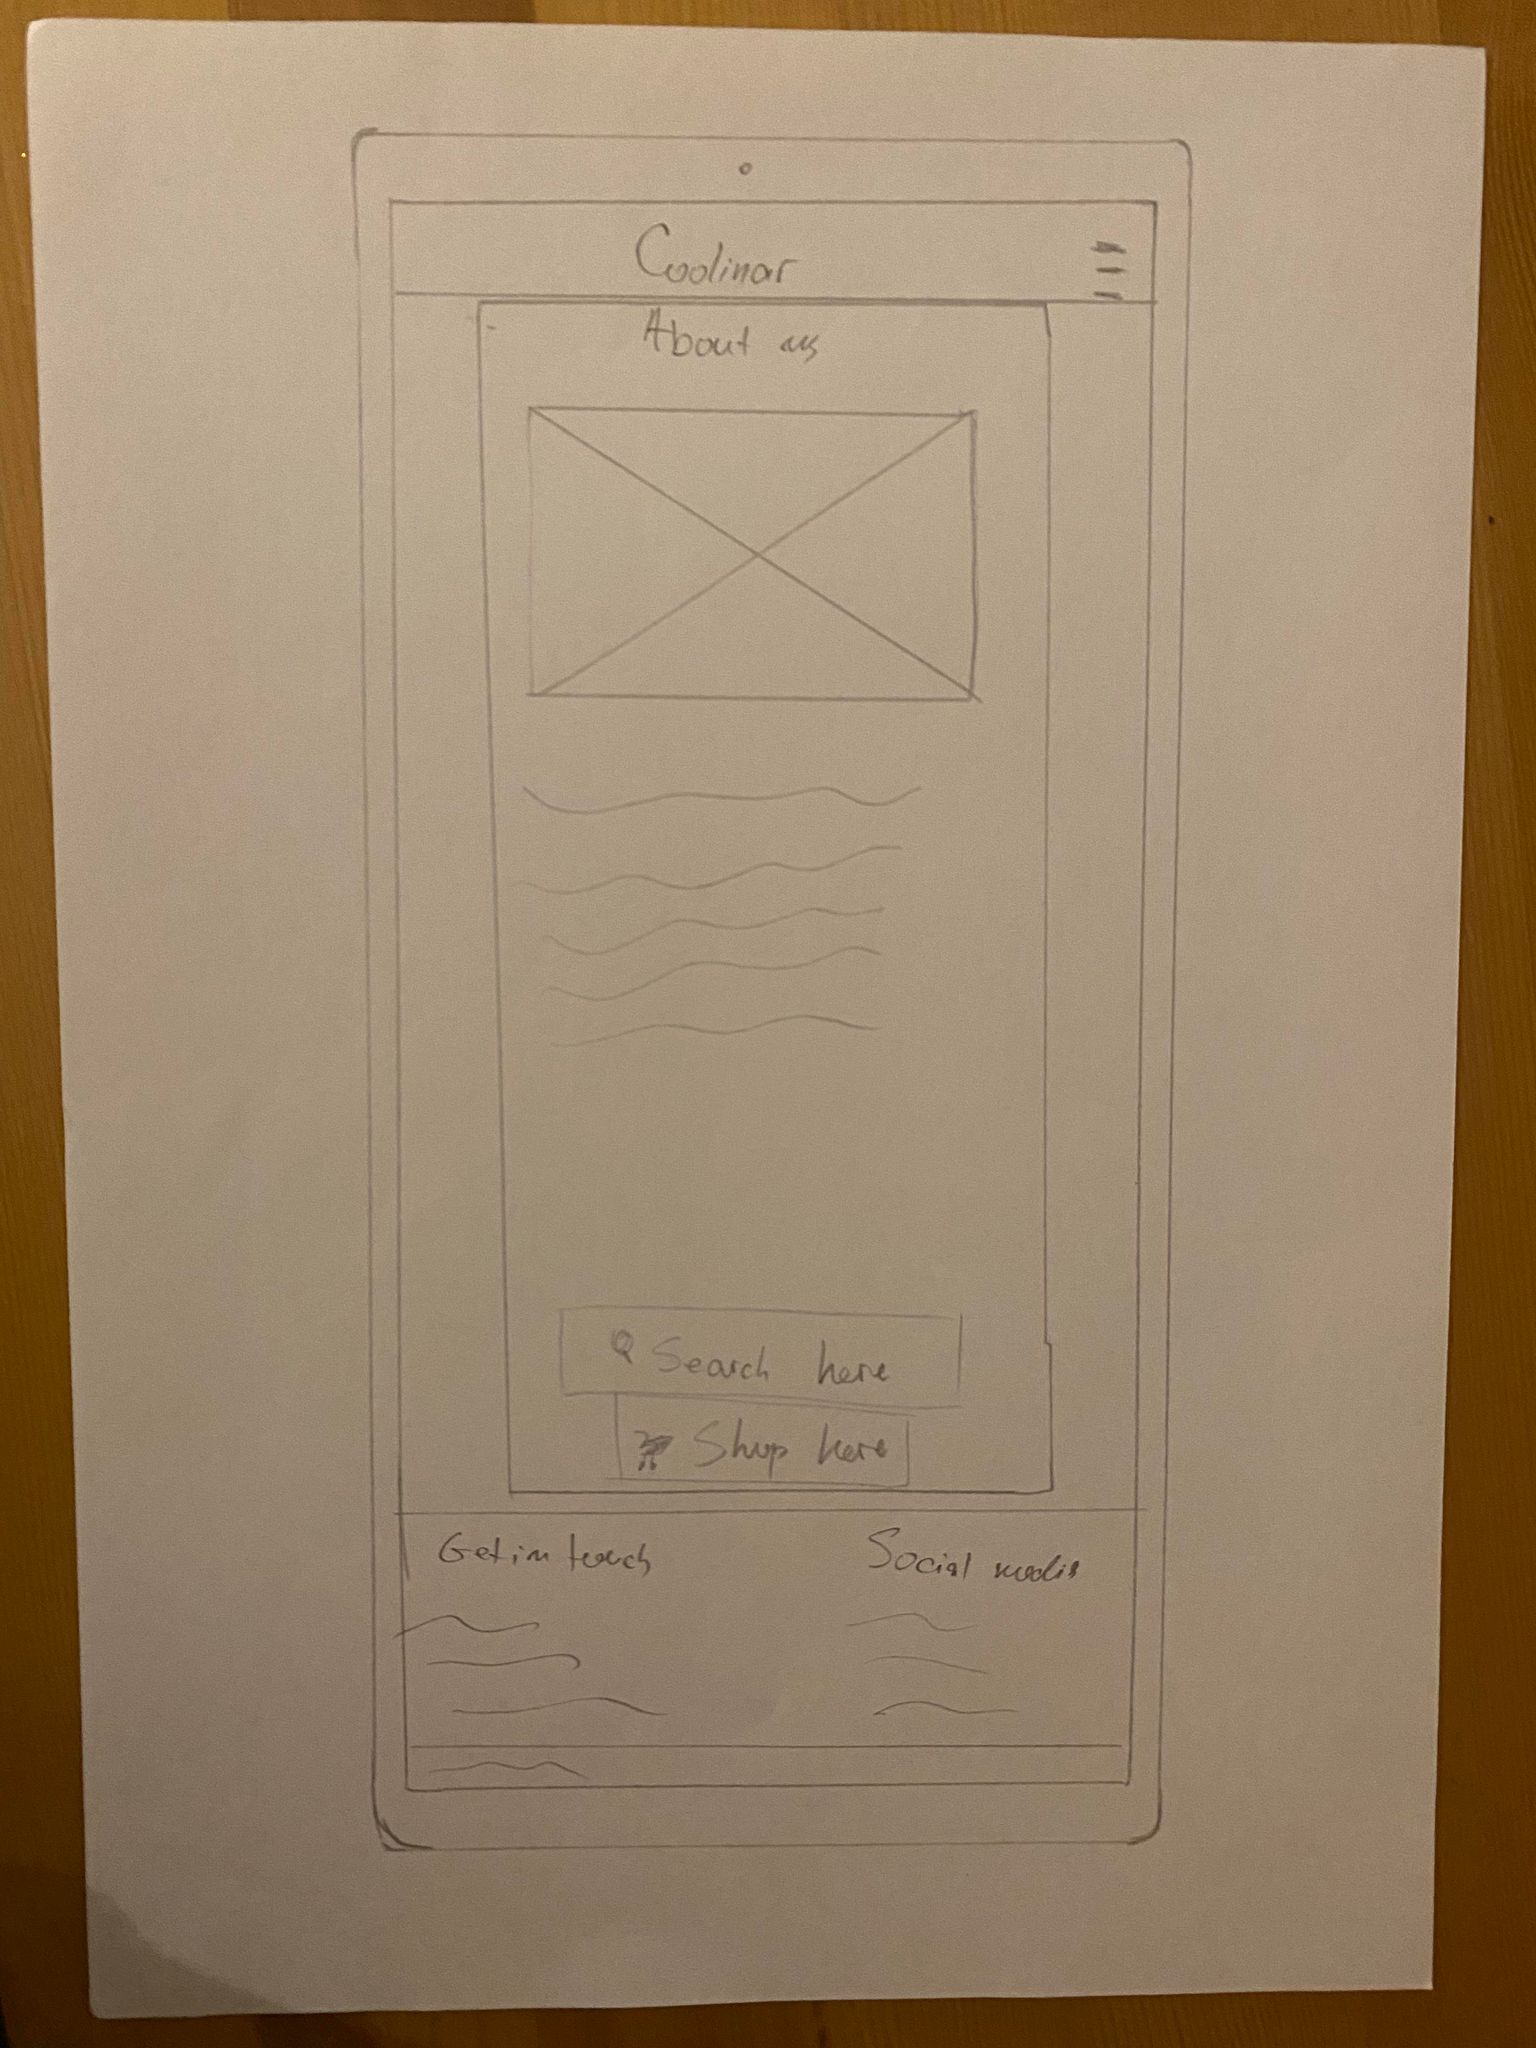 Coolinar
About us
Search here
Shop here
Get in touch
Social media